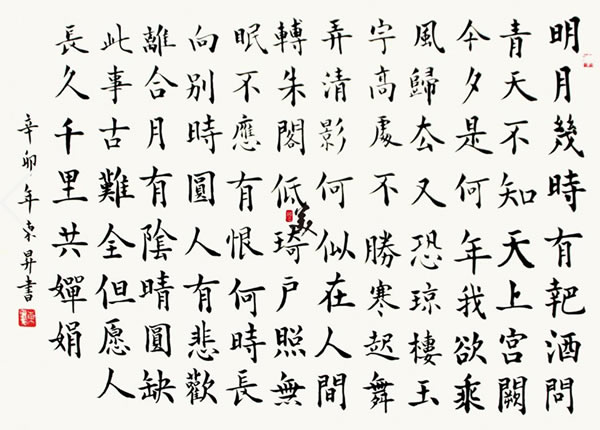 明月幾時有靶酒問
青天不知天上宮闕
今夕是何年我欲乘
風歸厺又恐琼樓玉
宇高處不勝寒起舞
弄清影何似在人間
轉朱閣低琦户照無
眠不應有恨何時長
向别時圓人有悲歡
離合月有陰晴圓缺
此事古難全但愿人
長久千里共嬋娟
辛卯年东昇書